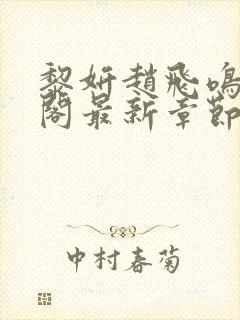 黎妍趙飛鳴
閣最新章節
中村春菊